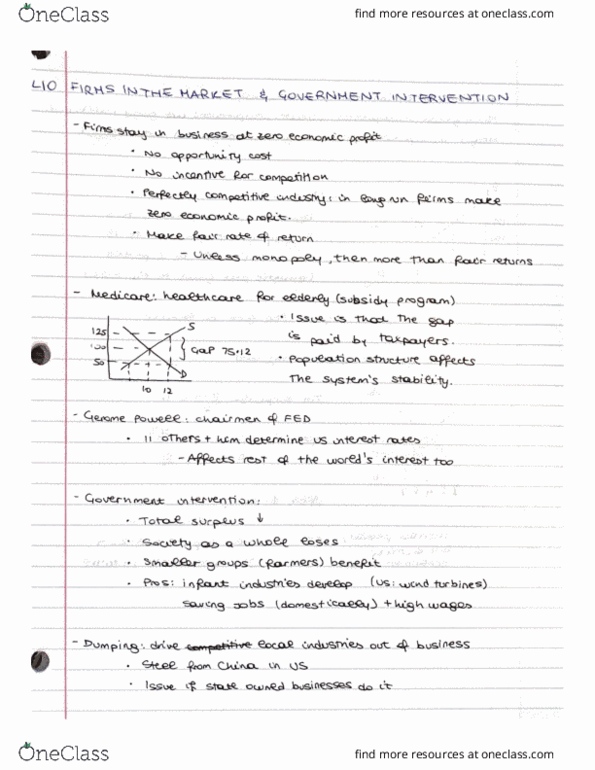 OneClass
find more resources at oneclass.com
L10 FIRMS IN THE MARKET & GOVERNMENT INTERVENTION
- Firms stay in business at zero economic profit
• No opportunity cost
• No incentive for competition
• Perfectly competitive industry: in long run firms make
zero economic profit.
• Make fair rate of return
- Unless monopoly, then more than fair returns
- Medicare: healthcare for elderly (subsidy program)
• Issue is that the gap
is paid by taxpayers.
• Population structure affects
the system's stability.
125
100
50
S
D
} GAP 75·12
10 12
- Gerome Powell: chairmen of FED
• 11 others + him determine US interest rates
- Affects rest of the world's interest too
- Government intervention:
• Total surplus ↓
• Society as a whole loses
• Smaller groups (farmers) benefit
• Pros: infant industries develop (US: wind turbines)
saving jobs (domestically) + high wages
- Dumping: drive competitive local industries out of business
• Steel from China in US
• Issue if state owned businesses do it
OneClass
find more resources at oneclass.com